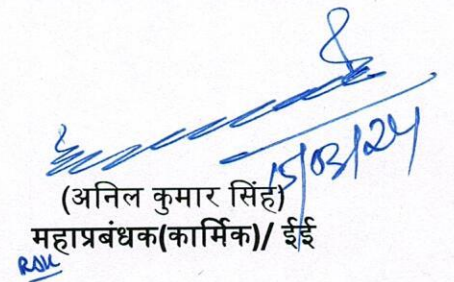 15/03/24
(अनिल कुमार सिंह)
महाप्रबंधक(कार्मिक)/ ईई